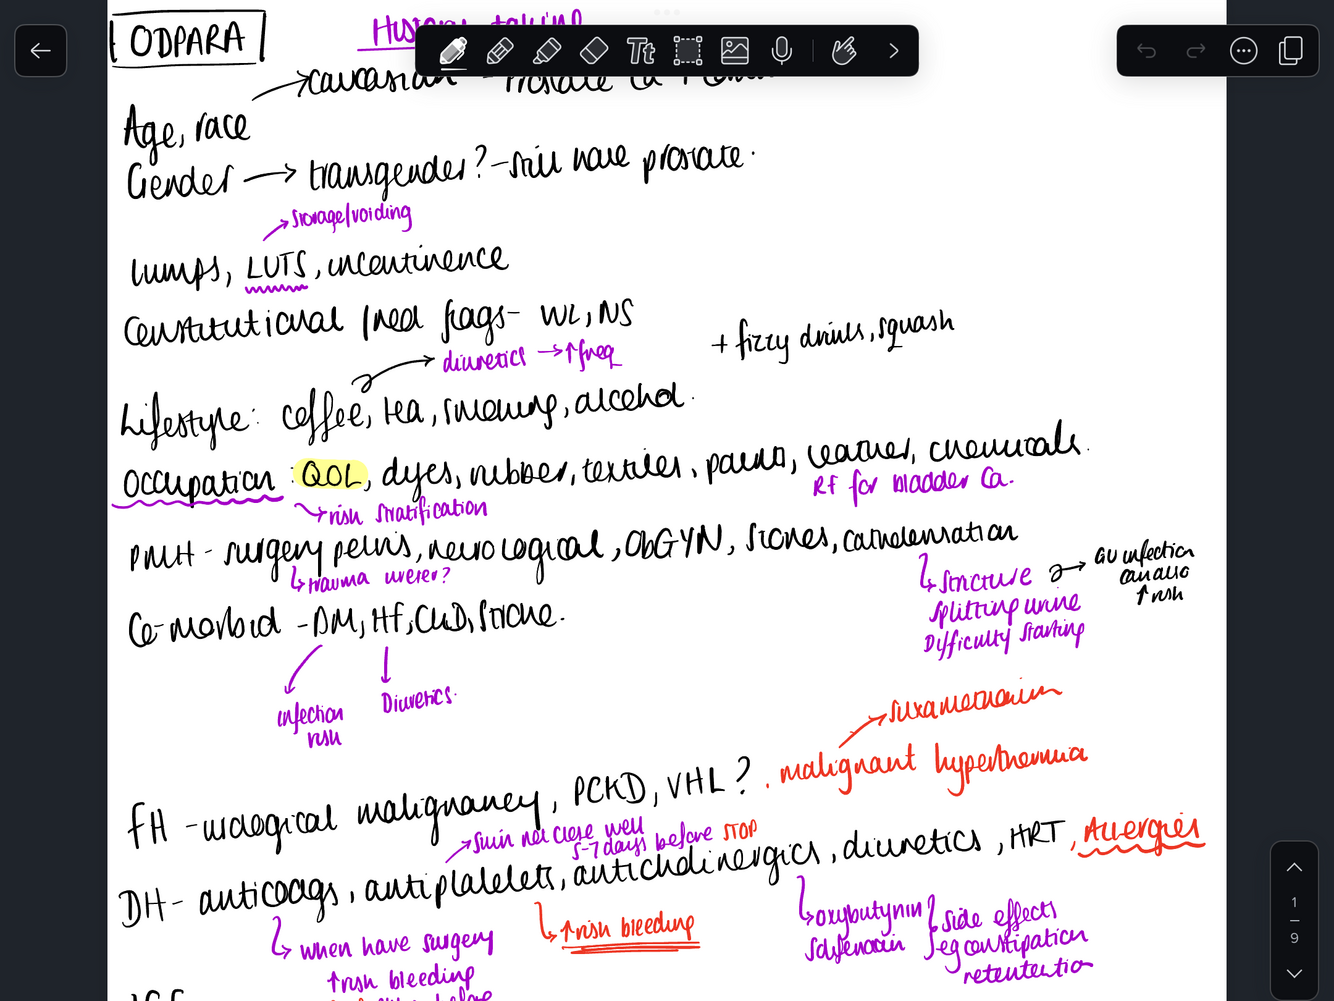 ODPARA
History taking
Caucasian - Prostate Ca
Age, race
Gender → transgender? - still have prostate.
→ storage/voiding
lumps, LUTS, incontinence
Constitutional / red flags - WL, NS
+ fizzy drinks, squash
diuretics → ↑freq
Lifestyle: coffee, tea, smoking, alcohol.
Occupation: QOL, dyes, rubber, textiles, paints, leather, chemicals.
RF for bladder Ca.
→ risk stratification
PMH - surgery pelvis, neurological, ObGYN, stones, catheterisation
↳ trauma ureter?
↳ stricture → GU infection can also ↑ risk
splitting urine
Difficulty starting
Co-morbid - DM, HF, CKD, stroke.
infection risk
Diuretics.
→ suxamethonium
malignant hyperthermia
FH - urological malignancy, PCKD, VHL?
→ skin not close well
5-7 days before STOP
DH - anticoags, antiplatelets, anticholinergics, diuretics, HRT, Allergies
↳ ↑risk bleeding
↳ oxybutynin
solifenacin
side effects
eg constipation
retention
↳ when have surgery
↑risk bleeding
before
1
9